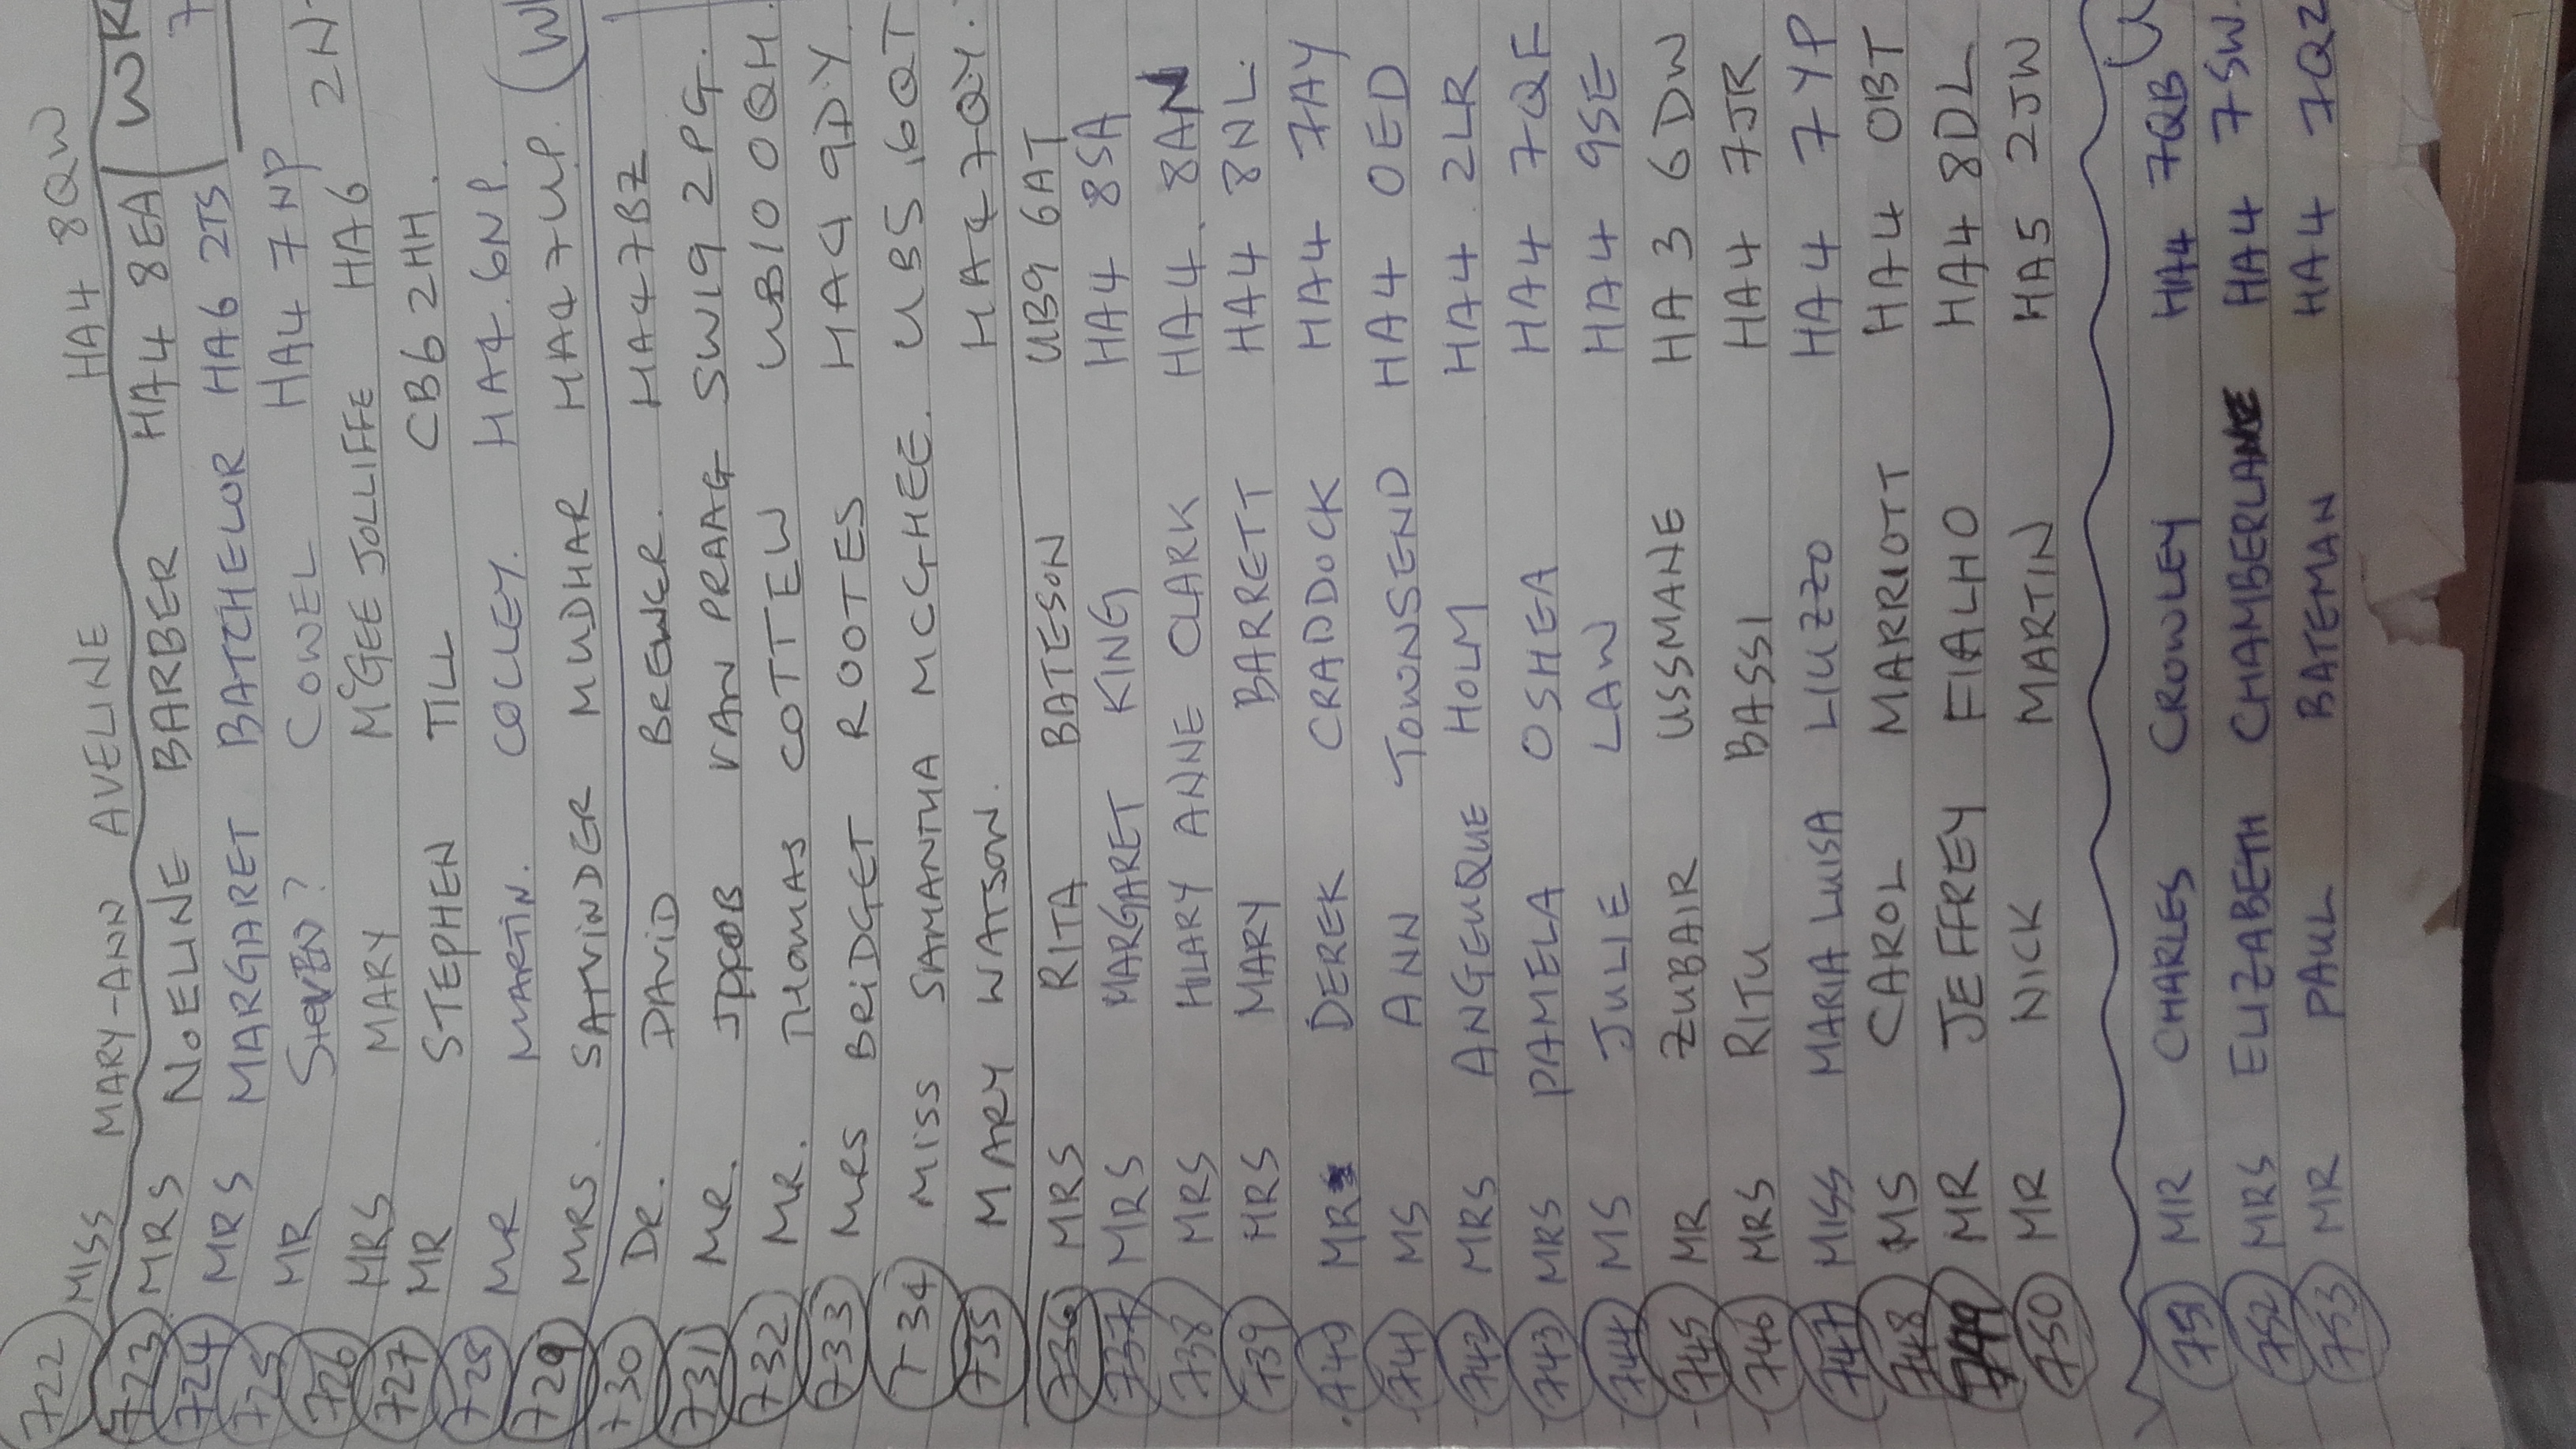 722 MISS MARY-ANN AVELINE HA4 8QW
723 MRS NOELINE BARBER HA4 8EA WK
724 MRS MARGARET BATCHELOR HA6 2TS 7
725 MR STEVEN? COWEL HA4 7NP
726 MRS MARY McGEE JOLLIFFE HA6 2N
727 MR STEPHEN TILL CB6 2HH.
728 MR MARTIN. COLLEY. HA4. 6NP.
729 MRS. SATVINDER MUDHAR HA4 7UP. (W
730 DR. DAVID BREWER. HA4 7BZ
731 MR. JACOB VAN PRAAG SW19 2PG.
732 MR. THOMAS COTTEW UB10 0QH.
733 MRS BRIDGET ROOTES HA4 9DY.
734 MISS SAMANTHA MCGHEE. UB5 6QT
735 MARY WATSON. HA4 7QY.
736 MRS RITA BATESON UB9 6AT
737 MRS MARGARET KING HA4 8SA
738 MRS HILARY ANNE CLARK HA4. 8AN
739 MRS MARY BARRETT HA4 8NL.
740 MR DEREK CRADDOCK HA4 7AY
741 MS ANN TOWNSEND HA4 0ED
742 MRS ANGELIQUE HOLM HA4 2LR
743 MRS PAMELA OSHEA HA4 7QF
744 MS JULIE LAW HA4 9SE
745 MR ZUBAIR USSMANE HA3 6DW
746 MRS RITU BASSI HA4 7JR
747 MISS MARIA LUISA LIUZZO HA4 7YP
748 MS CAROL MARRIOTT HA4 0BT
749 MR JEFFREY FIALHO HA4 8DL
750 MR NICK MARTIN HA5 2JW
751 MR CHARLES CROWLEY HA4 7QB
752 MRS ELIZABETH CHAMBERLAINE HA4 7SW
753 MR PAUL BATEMAN HA4 7QZ